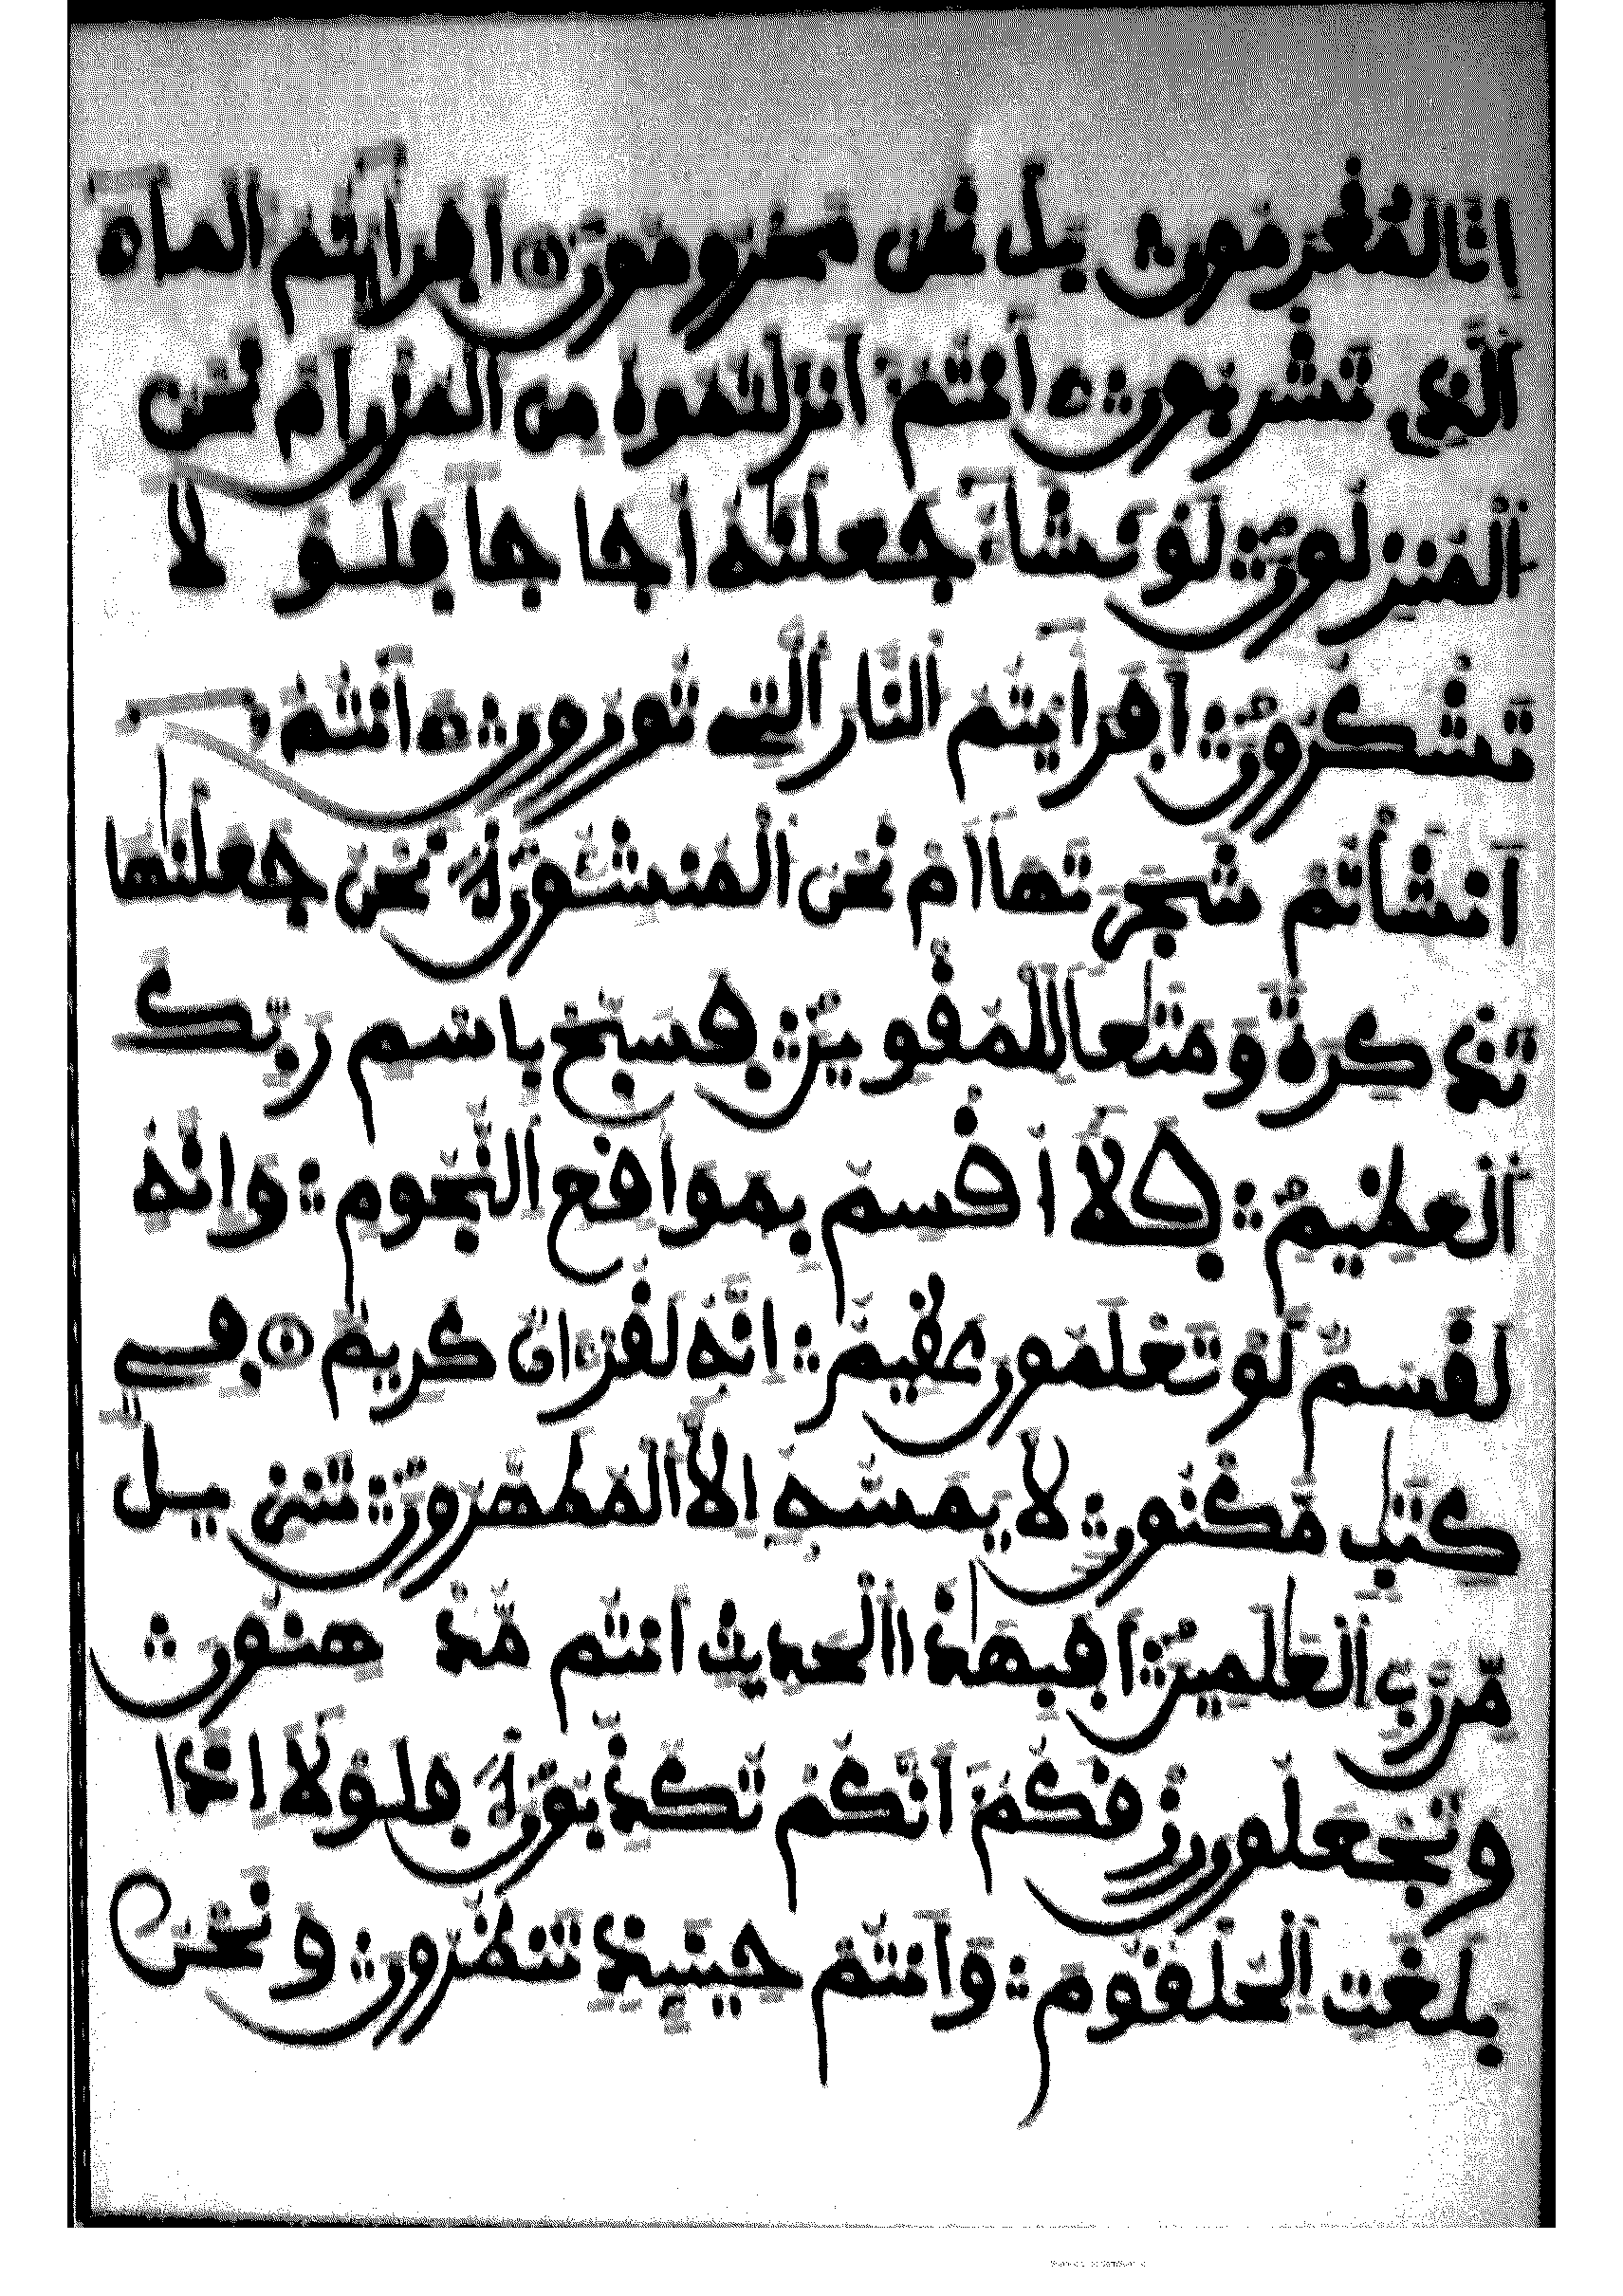 انا لمغرمون بل نحن محرومون افرايتم الماء
الذي تشربون ءانتم انزلتموه من المزن ام نحن
المنزلون لو نشاء جعلنه اجاجا فلو لا
تشكرون افرايتم النار التي تورون ءانتم
انشاتم شجرتها ام نحن المنشئون نحن جعلنها
تذكرة ومتعا للمقوين فسبح باسم ربك
العظيم فلا اقسم بمواقع النجوم وانه
لقسم لو تعلمون عظيم انه لقرءان كريم في
كتب مكنون لا يمسه الا المطهرون تنزيل
من رب العلمين افبهذا الحديث انتم مدهنون
وتجعلون رزقكم انكم تكذبون فلولا اذا
بلغت الحلقوم وانتم حينئذ تنظرون ونحن